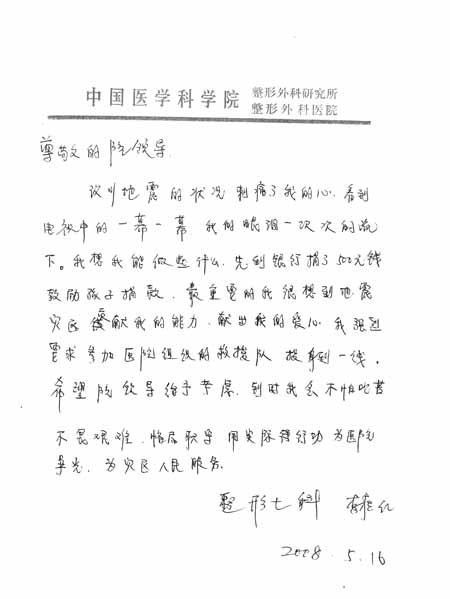 中国医学科学院 整形外科研究所
整形外科医院
尊敬的院领导
汶川地震的状况刺痛了我的心.看到
电视中的一幕一幕 我的眼泪一次次的流
下。我想我能做些什么.先到银行捐了500元钱
鼓励孩子捐款.最重要的我很想到地震
灾区贡献我的能力.献出我的爱心.我强烈
要求参加医院组织的救援队 投身到一线。
希望院领导给予考虑.到时我会不怕吃苦
不畏艰难.恪尽职守 用实际行动为医院
争光.为灾区人民服务.
整形七科
2008.5.16